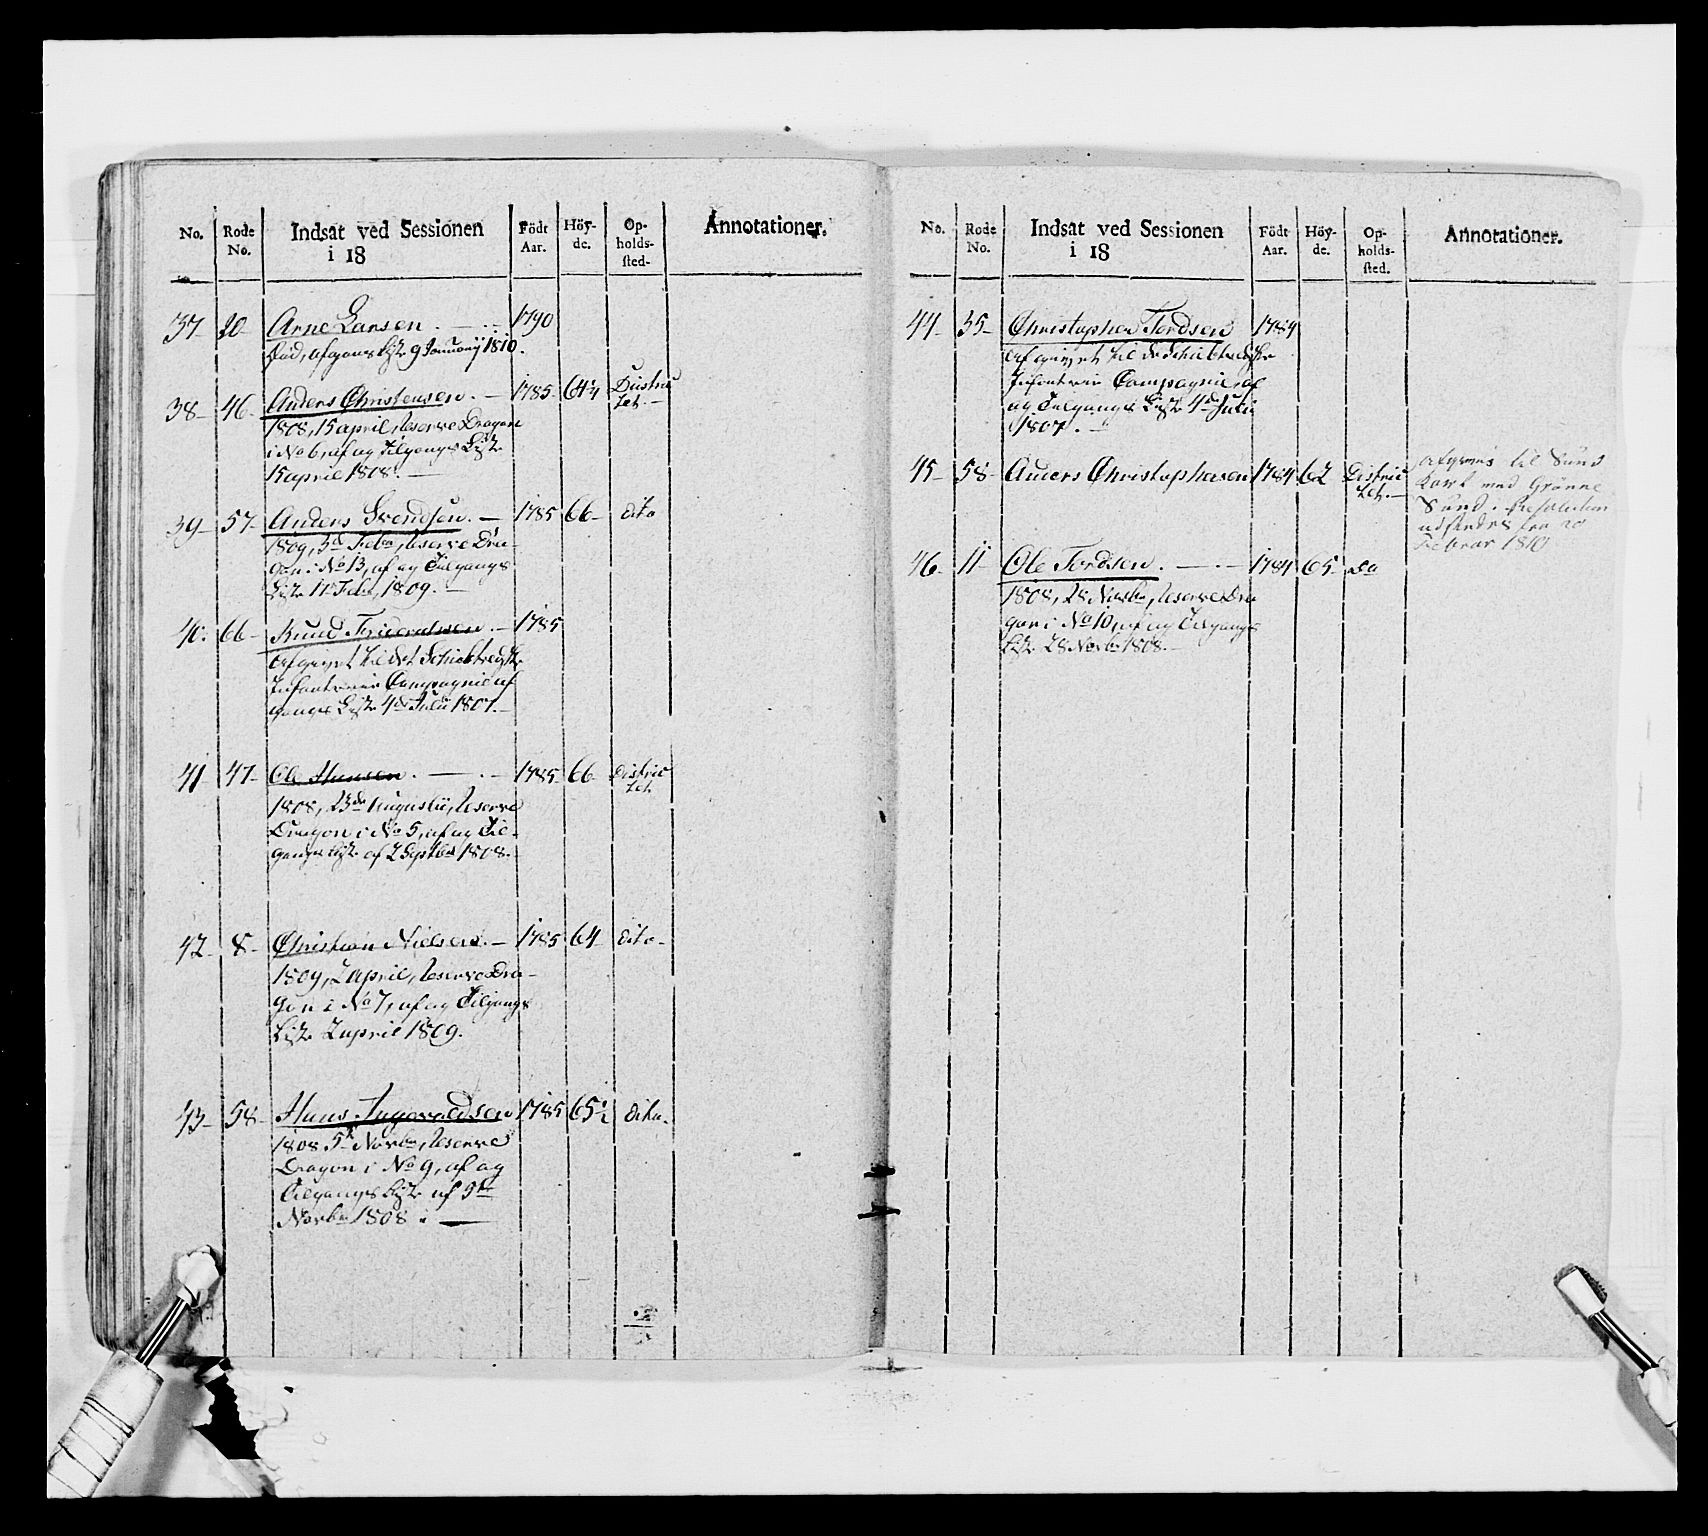 No. Rode No. Indsat ved Sessionen i 18 Födt Aar. Höy-de. Op-holds-sted. Annotationer.
37 20 Arne Larsen. 1790
Död, afgangs Liste 9 Januarij 1810.
38 46 Anders Christensen. 1785 64¼ Districtet.
1808, 15 april, Reserve Dragon
i No 6, af og Tilgangs Liste
15 april 1808.
39 57 Anders Svendsen. 1785 66 dito
1809, 3de Febr, Reserve Dra-
gon i No 13, af og Tilgangs
Liste 11te Febr, 1809.
40. 66 Knud 1785
Afgivet til det
Infanterie Compagnie af
gangs Liste 4de Julii 1807.
41 47 Ole Hansen. 1785 66 Districtet
1808, 23de Augustii, Reserve
Dragon i No 5, af og Til-
gangs Liste af 2 Septbr 1808.
42 8 Christian Nielsen. 1785 64 dito
1809, 2 April, Reserve Dra-
gon i No 7, af og Tilgangs
Liste 2 april 1809.
43 58 Hans Ingevaldsen 1785 65½ dito.
1808 5te Novbr, Reserve
Dragon i No 9, af og
Tilgangs Liste af 9te
Novbr 1808.
No. Rode No. Indsat ved Sessionen i 18 Födt Aar. Höy-de. Op-holds-sted. Annotationer.
44 35 Christopher Tordsen 1784
Afgivet til de
Infanterie Compagnie, af
og Tilgangs Liste 4de Julii
1807.
45 58 Anders Christophersen 1784 62 Districtet. Afgives til Sund
med Grönne
Sund.
udstedes fra 20
Februar 1810
46 11 Ole Tordsen. 1784 65 do
1808, 28 Novbr, Reserve Dra
gon i No 10, af og Tilgangs
Liste 28 Novbr 1808.